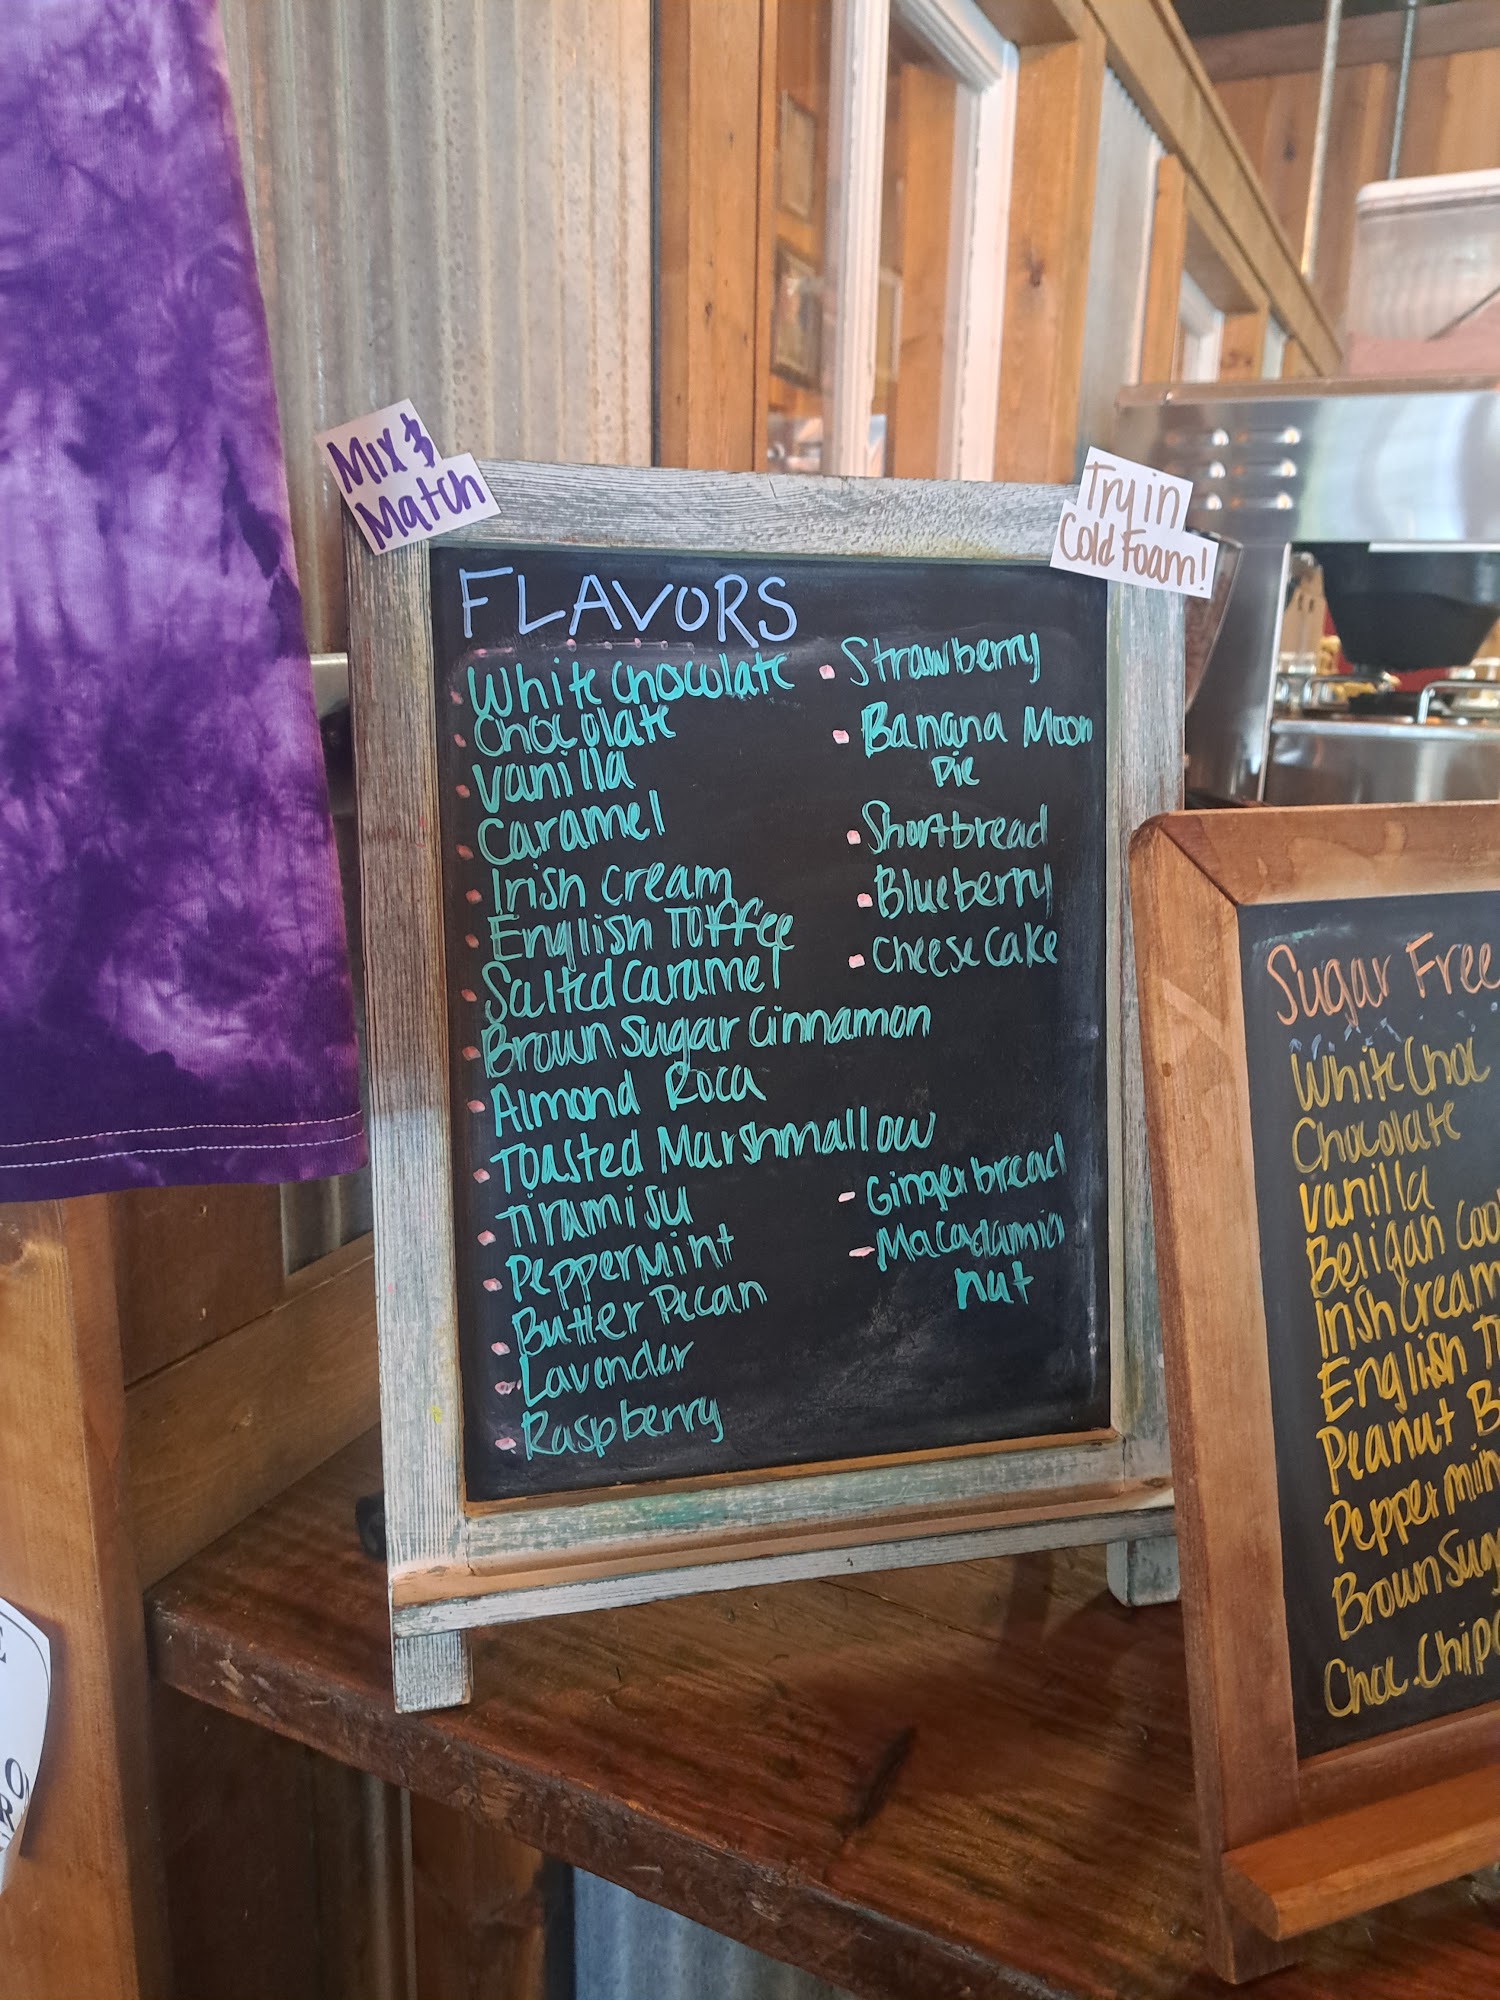 Mix &
Match
Try in
Cold Foam!
FLAVORS
White Chocolate
Chocolate
Vanilla
Caramel
Irish Cream
English Toffee
Salted Caramel
Brown Sugar Cinnamon
Almond Roca
Toasted Marshmallow
Tiramisu
Peppermint
Butter Pecan
Lavender
Raspberry
Strawberry
Banana Moon
Pie
Shortbread
Blueberry
Cheese Cake
- Gingerbread
- Macadamia
nut
Sugar Free
White Choc
Chocolate
Vanilla
Beligan
Irish Cream
English
Peanut
Peppermin
Brown Sug
Choc. Chip